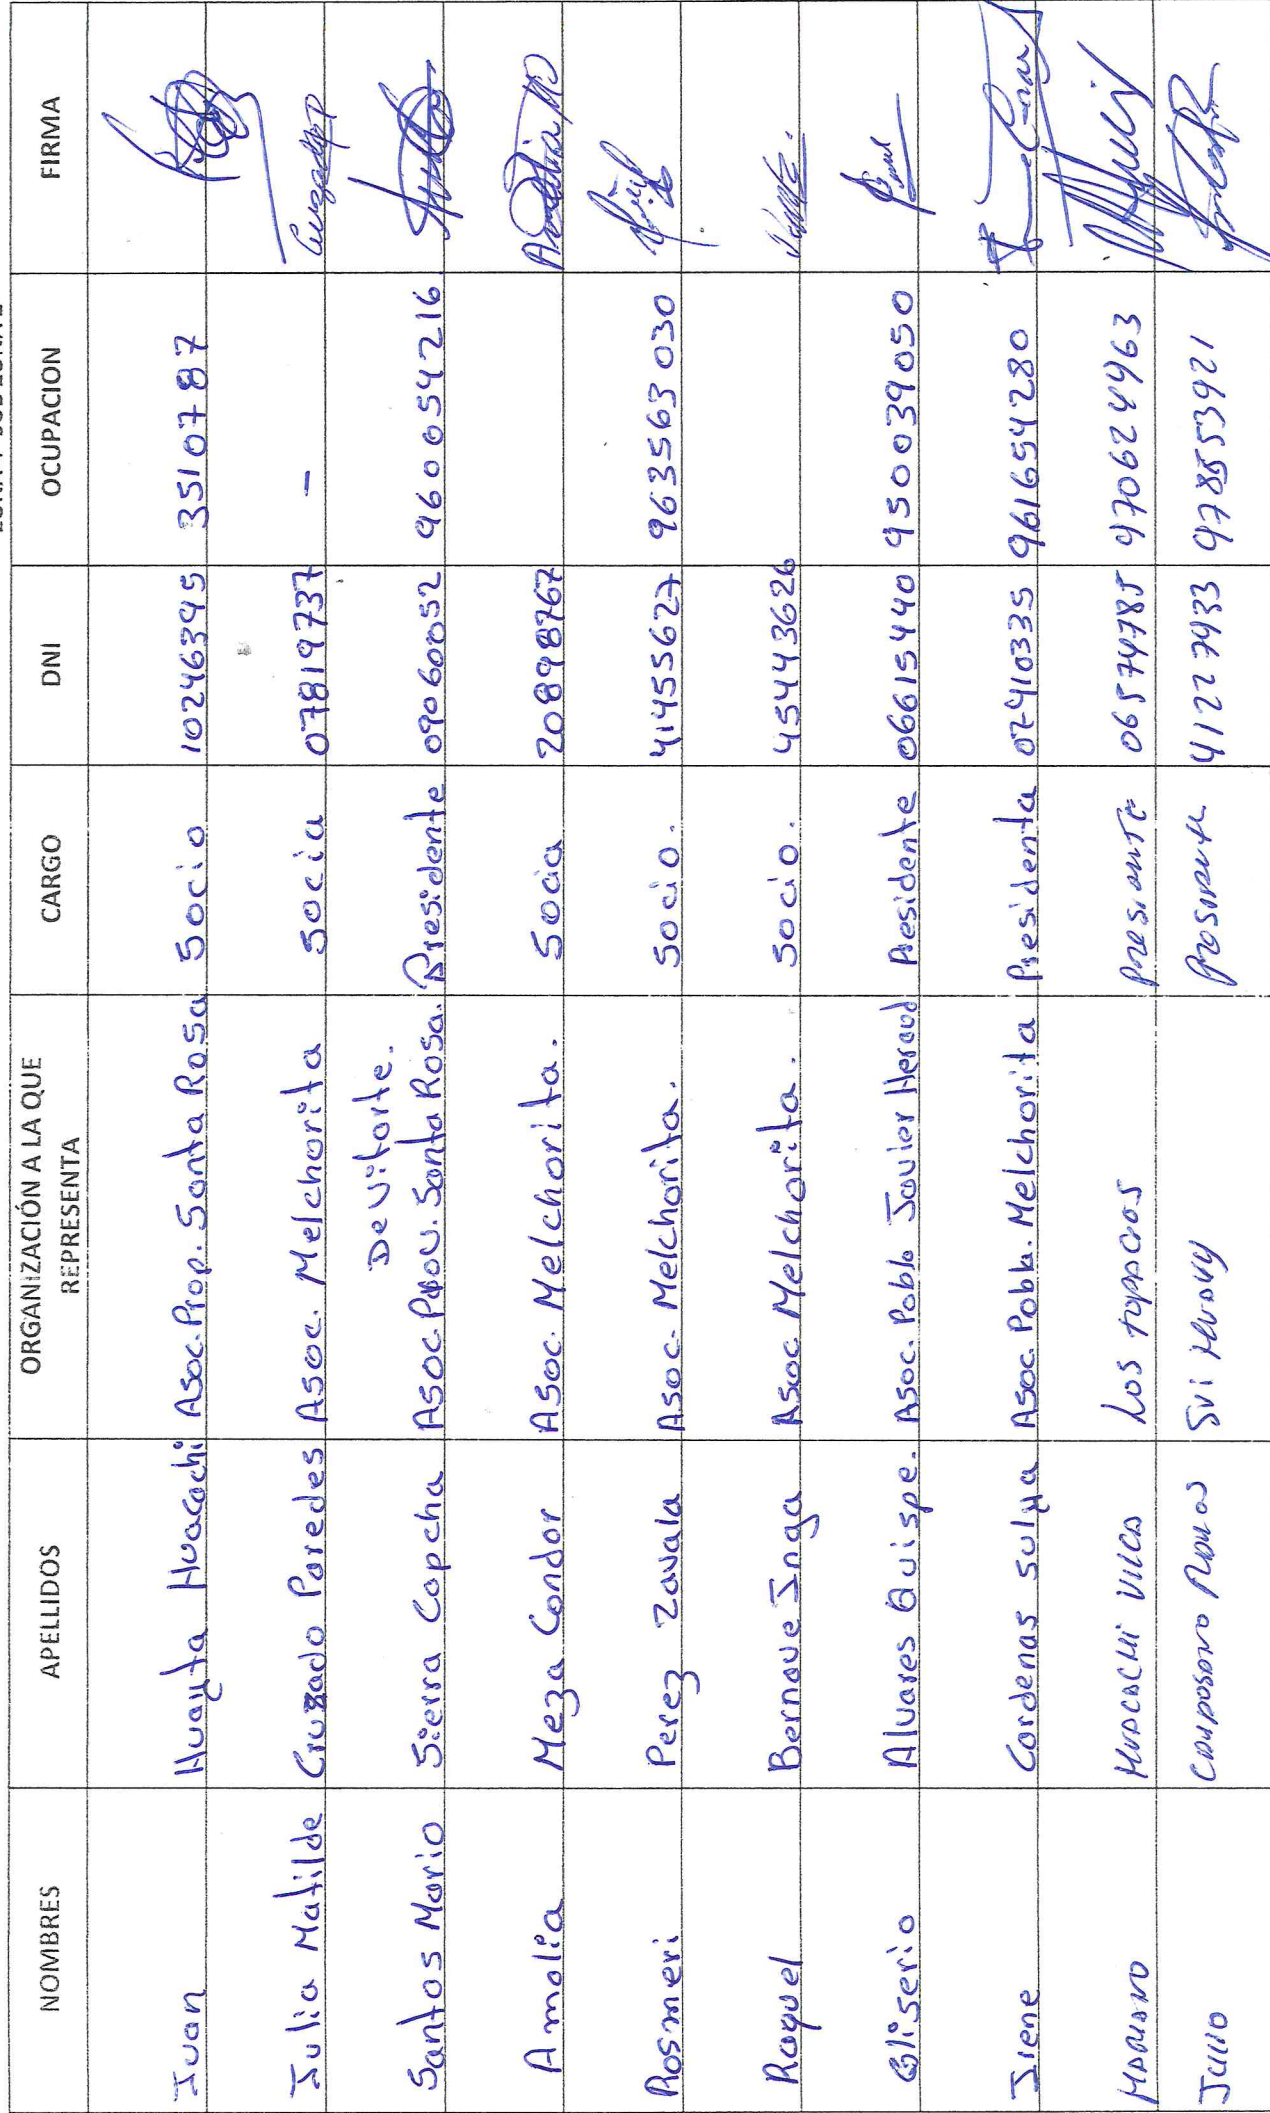 NOMBRES APELLIDOS ORGANIZACIÓN A LA QUE REPRESENTA CARGO DNI OCUPACION FIRMA
Juan Huayta Huacachi Asoc. Prop. Santa Rosa Socio 10246395 3510787
Julia Matilde Cruzado Paredes Asoc. Melchorita Socia 07819737 -
De Vitarte.
Santos Mario Sierra Copcha Asoc. Prov. Santa Rosa. Presidente 09060052 960054216
Amalia Meza Condor Asoc. Melchorita. Socia 20898767 Amalia MC
Rosmeri Perez Zavala Asoc. Melchorita. Socio. 41455627 963563030
Raquel Bernave Inga Asoc. Melchorita. Socio. 45443626
Gliserio Alvares Quispe. Asoc. Pobla Javier Heraud Presidente 06615440 950039050
Irene Cardenas Sulya Asoc. Pobla. Melchorita Presidenta 07410335 961654280
MARIANO HUACACHI VILCA LOS 06574785 970624463
Julio 41227933 978553921